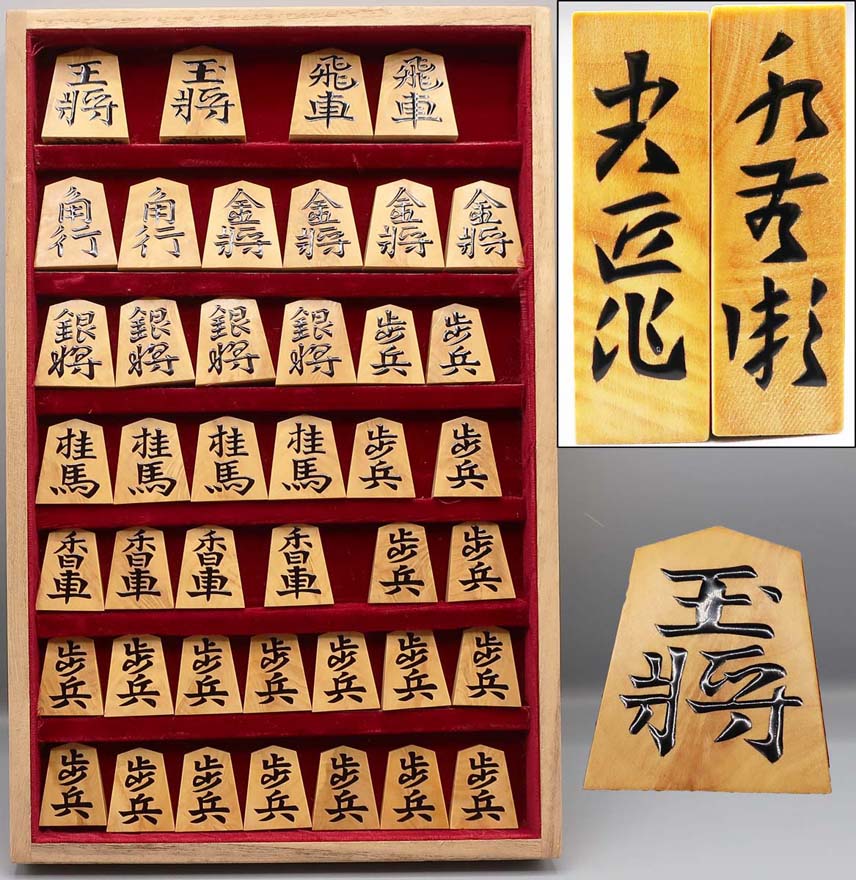 王將 玉將 飛車 飛車
角行 角行 金將 金將 金將 金將
銀將 銀將 銀將 銀將 歩兵 歩兵
桂馬 桂馬 桂馬 桂馬 歩兵 歩兵
香車 香車 香車 香車 歩兵 歩兵
歩兵 歩兵 歩兵 歩兵 歩兵 歩兵 歩兵
歩兵 歩兵 歩兵 歩兵 歩兵 歩兵 歩兵
水無瀬
匠作
玉將